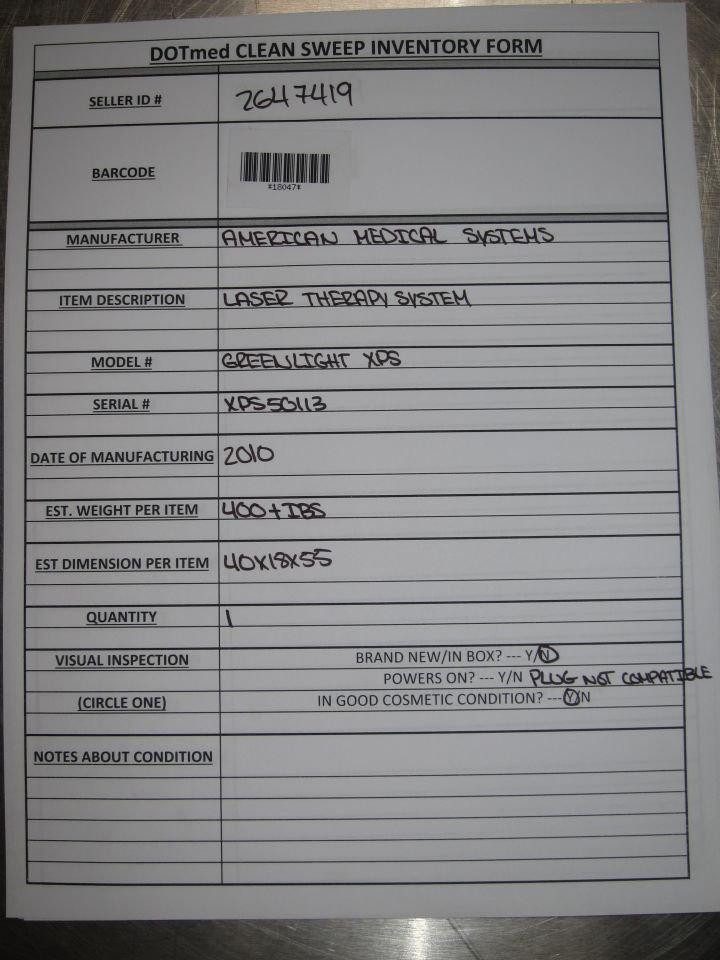 DOTmed CLEAN SWEEP INVENTORY FORM
SELLER ID # 2647419
BARCODE
*18047*
MANUFACTURER AMERICAN MEDICAL SYSTEMS
ITEM DESCRIPTION LASER THERAPY SYSTEM
MODEL # GREENLIGHT XPS
SERIAL # XPS50113
DATE OF MANUFACTURING 2010
EST. WEIGHT PER ITEM 400+ IBS
EST DIMENSION PER ITEM 40X18X55
QUANTITY 1
VISUAL INSPECTION BRAND NEW/IN BOX? --- Y/N
POWERS ON? --- Y/N PLUG NOT COMPATIBLE
(CIRCLE ONE) IN GOOD COSMETIC CONDITION? ---Y/N
NOTES ABOUT CONDITION